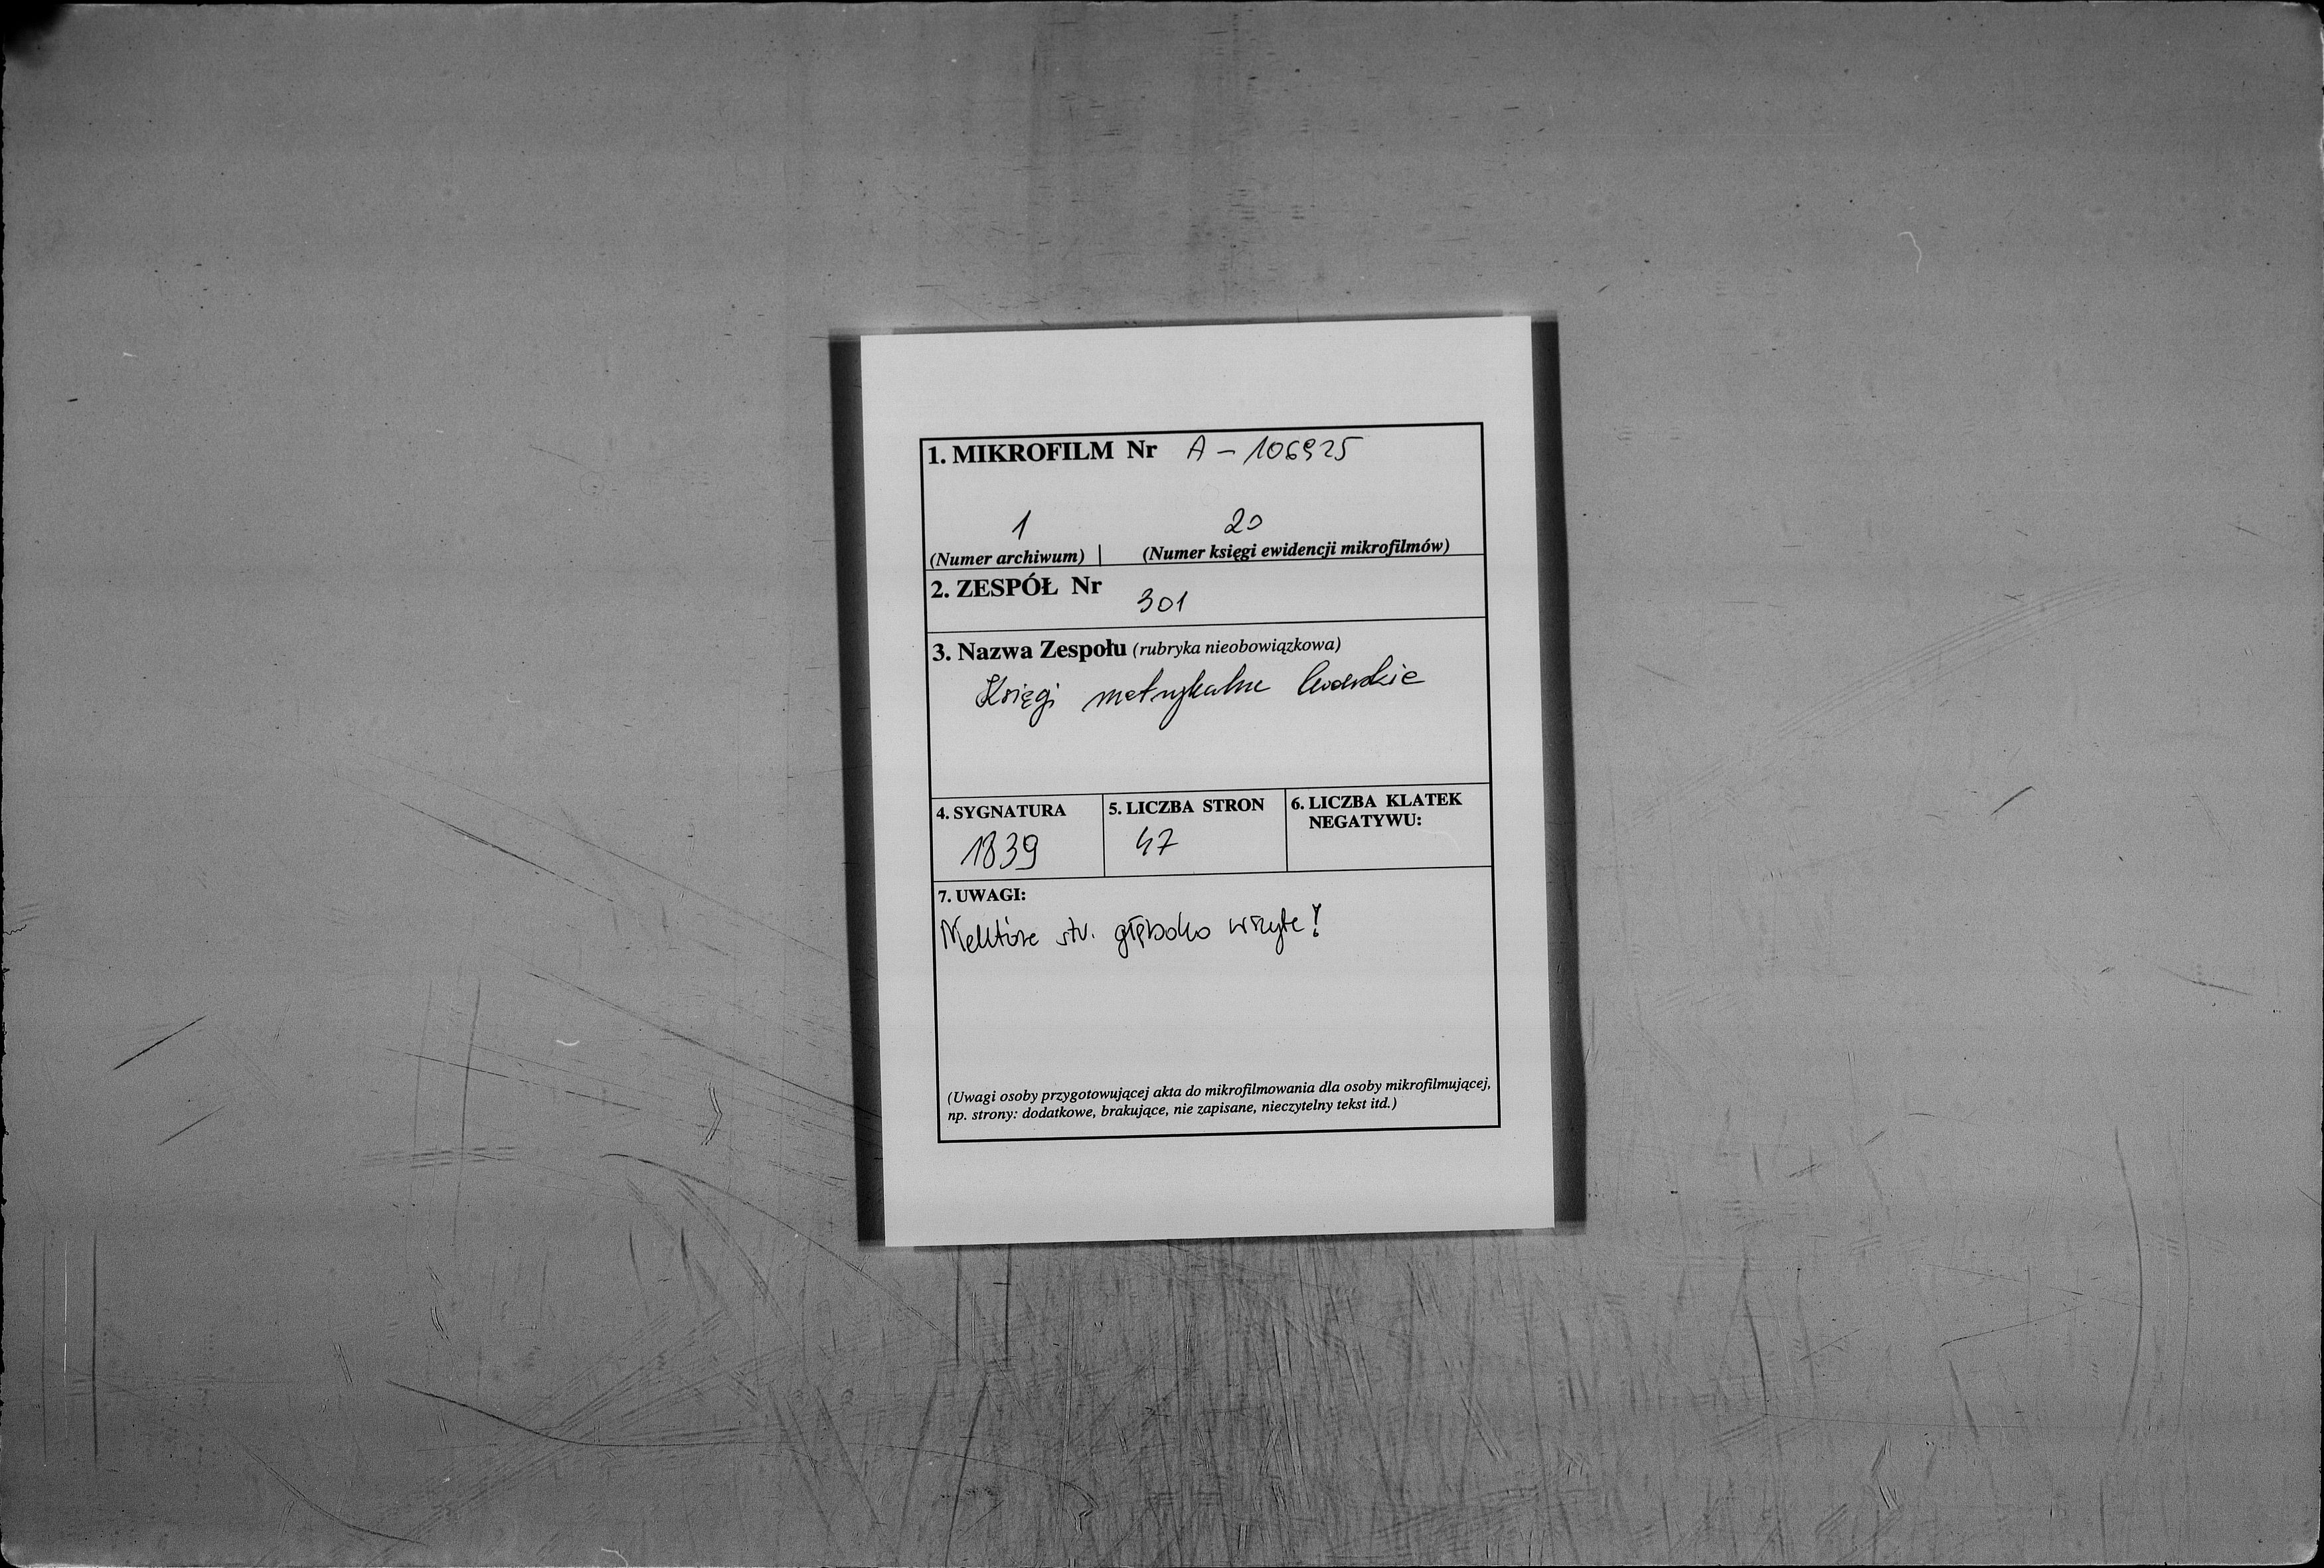 1. MIKROFILM Nr A - 106925
1 20
(Numer archiwum) | (Numer księgi ewidencji mikrofilmów)
2. ZESPÓŁ Nr
301
3. Nazwa Zespołu (rubryka nieobowiązkowa)
Księgi metrykalne
4. SYGNATURA 5. LICZBA STRON 6. LICZBA KLATEK
NEGATYWU:
1839 47
7. UWAGI:
Niektóre str. głęboko wszyte!
(Uwagi osoby przygotowującej akta do mikrofilmowania dla osoby mikrofilmującej,
np. strony: dodatkowe, brakujące, nie zapisane, nieczytelny tekst itd.)